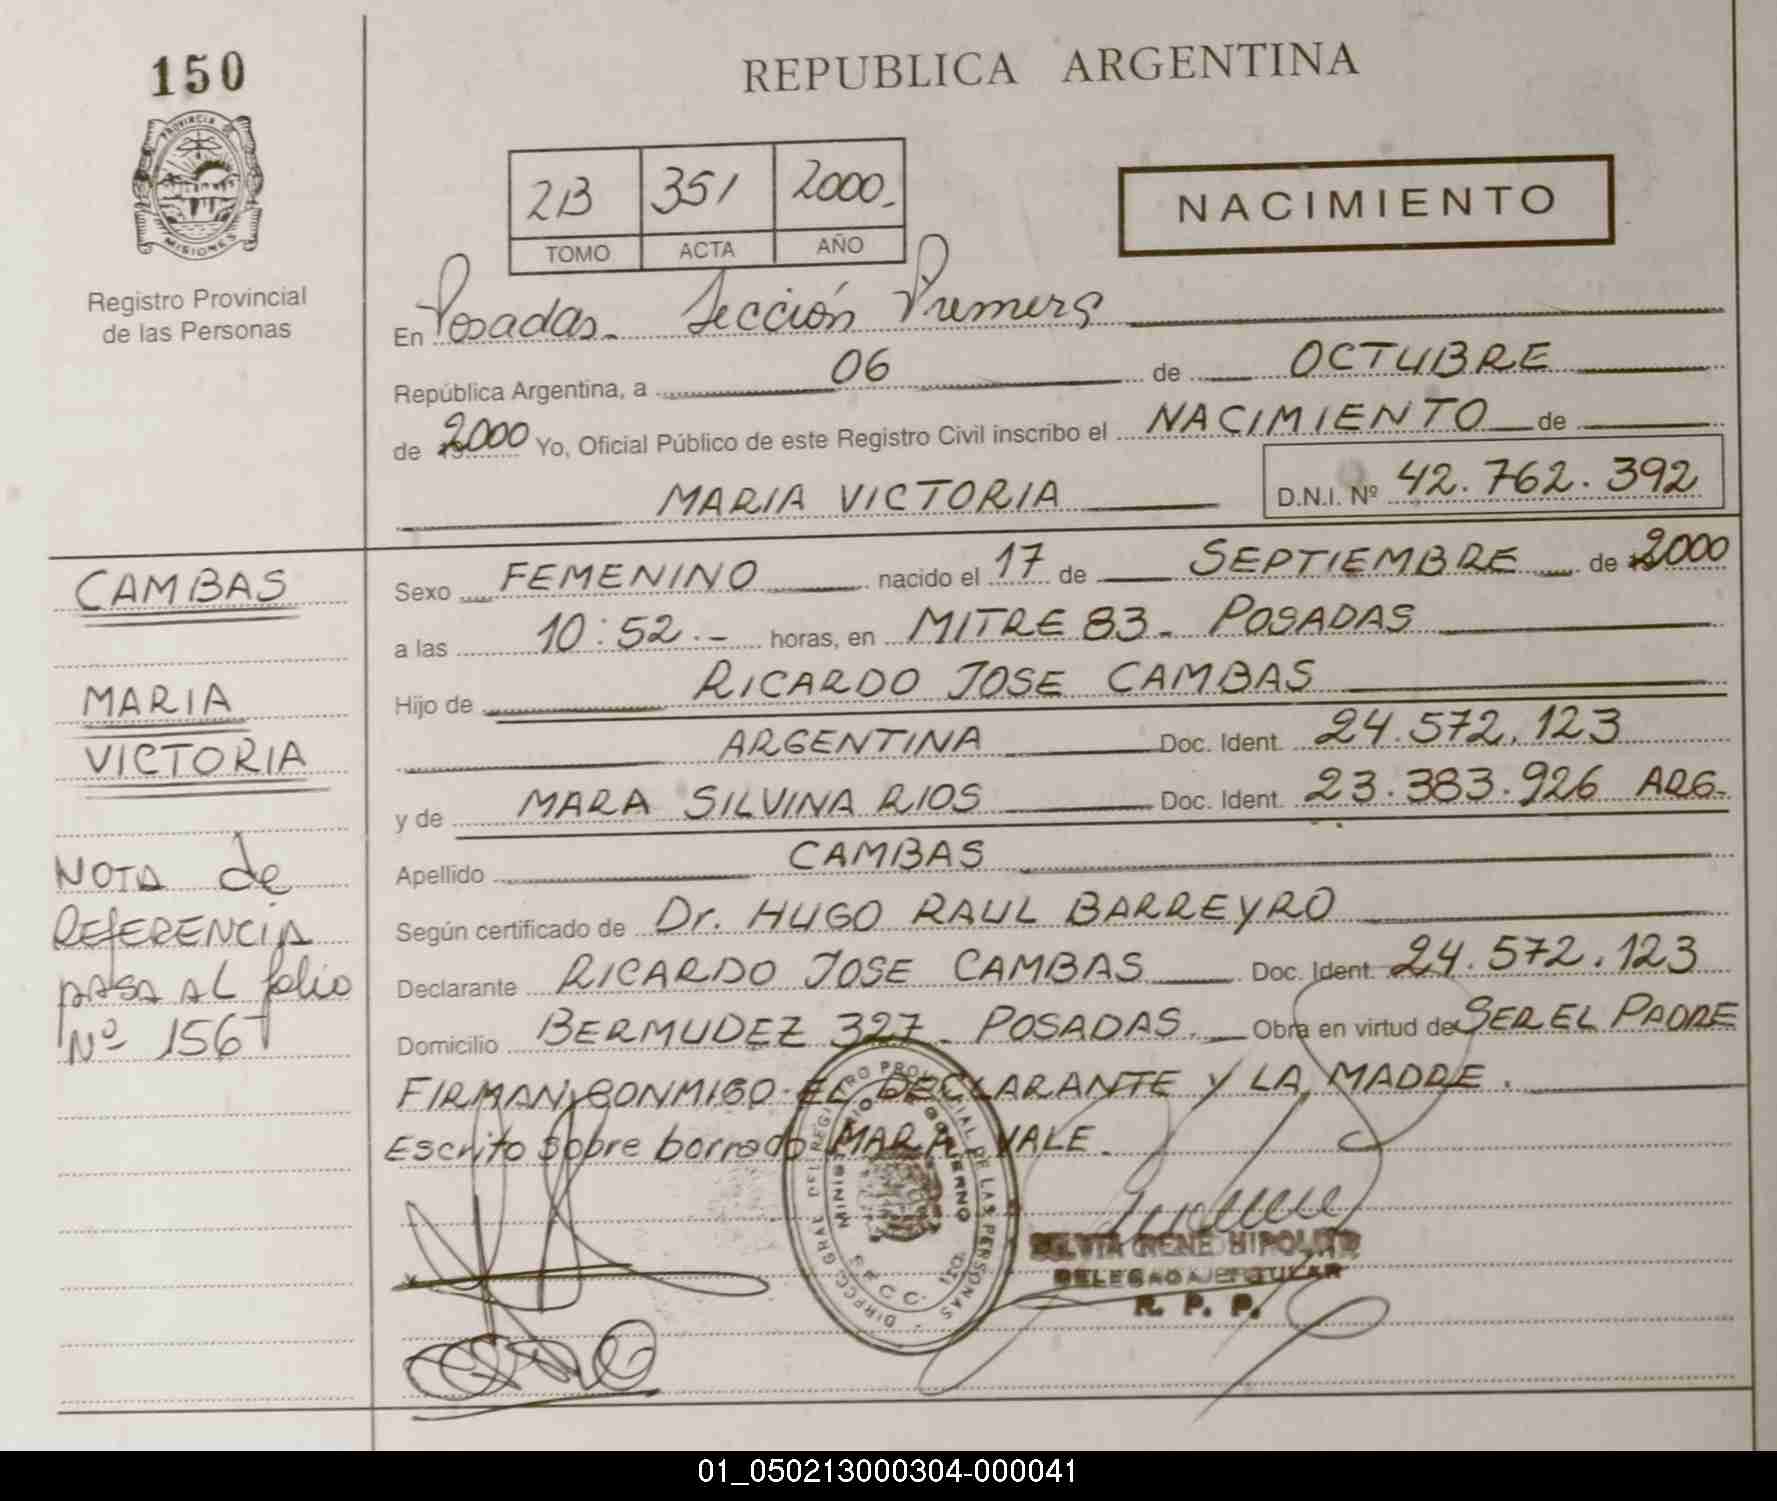 150
REPUBLICA ARGENTINA
PROVINCIA DE
MISIONES
Registro Provincial
de las Personas
2B 351 2000
TOMO ACTA AÑO
NACIMIENTO
En Posadas - Sección Primera
República Argentina, a 06 de OCTUBRE
de 2000 Yo, Oficial Público de este Registro Civil inscribo el NACIMIENTO de
MARIA VICTORIA D.N.I. Nº 42.762.392
CAMBAS
MARIA
VICTORIA
NOTA de
REFERENCIA
PASA AL folio
Nº 156
Sexo FEMENINO nacido el 17 de SEPTIEMBRE de 2000
a las 10:52.- horas, en MITRE 83 - POSADAS
Hijo de RICARDO JOSE CAMBAS
ARGENTINA Doc. Ident. 24.572.123
y de MARA SILVINA RIOS Doc. Ident. 23.383.926 ARG.
Apellido CAMBAS
Según certificado de Dr. HUGO RAUL BARREYRO
Declarante RICARDO JOSE CAMBAS Doc. Ident. 24.572.123
Domicilio BERMUDEZ 327 - POSADAS. Obra en virtud de SER EL PADRE
FIRMAN CONMIGO EL DECLARANTE Y LA MADRE.
Escrito sobre borrado MARA VALE.
DIRECC. GRAL. DEL REGISTRO PROVINCIAL DE LAS PERSONAS
MINISTERIO DE GOBIERNO
SILVIA IRENE HIPOLITO
DELEGADA TITULAR
R. P. P.
01_050213000304-000041